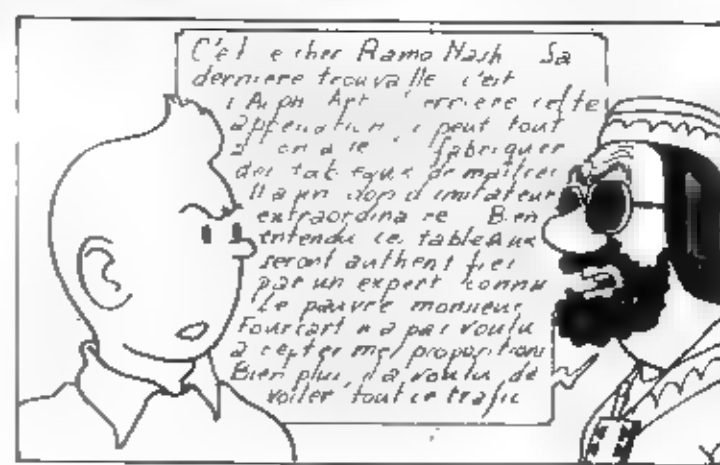 C'et e cher Ramo Nash Sa
derniere trouvaille c'est
l'Alph Art errière cette
appellation i peut tout
fabriquer
des tab eaux de maîtres
Il a un don d'imitateur
extraordina re Bien
entendu ces tableaux
seront authent fiés
par un expert connu
Le pauvre monsieur
Fourcart n a pas voulu
a cepter mes propositions
Bien plus, il a voulu dé
voiler tout ce trafic